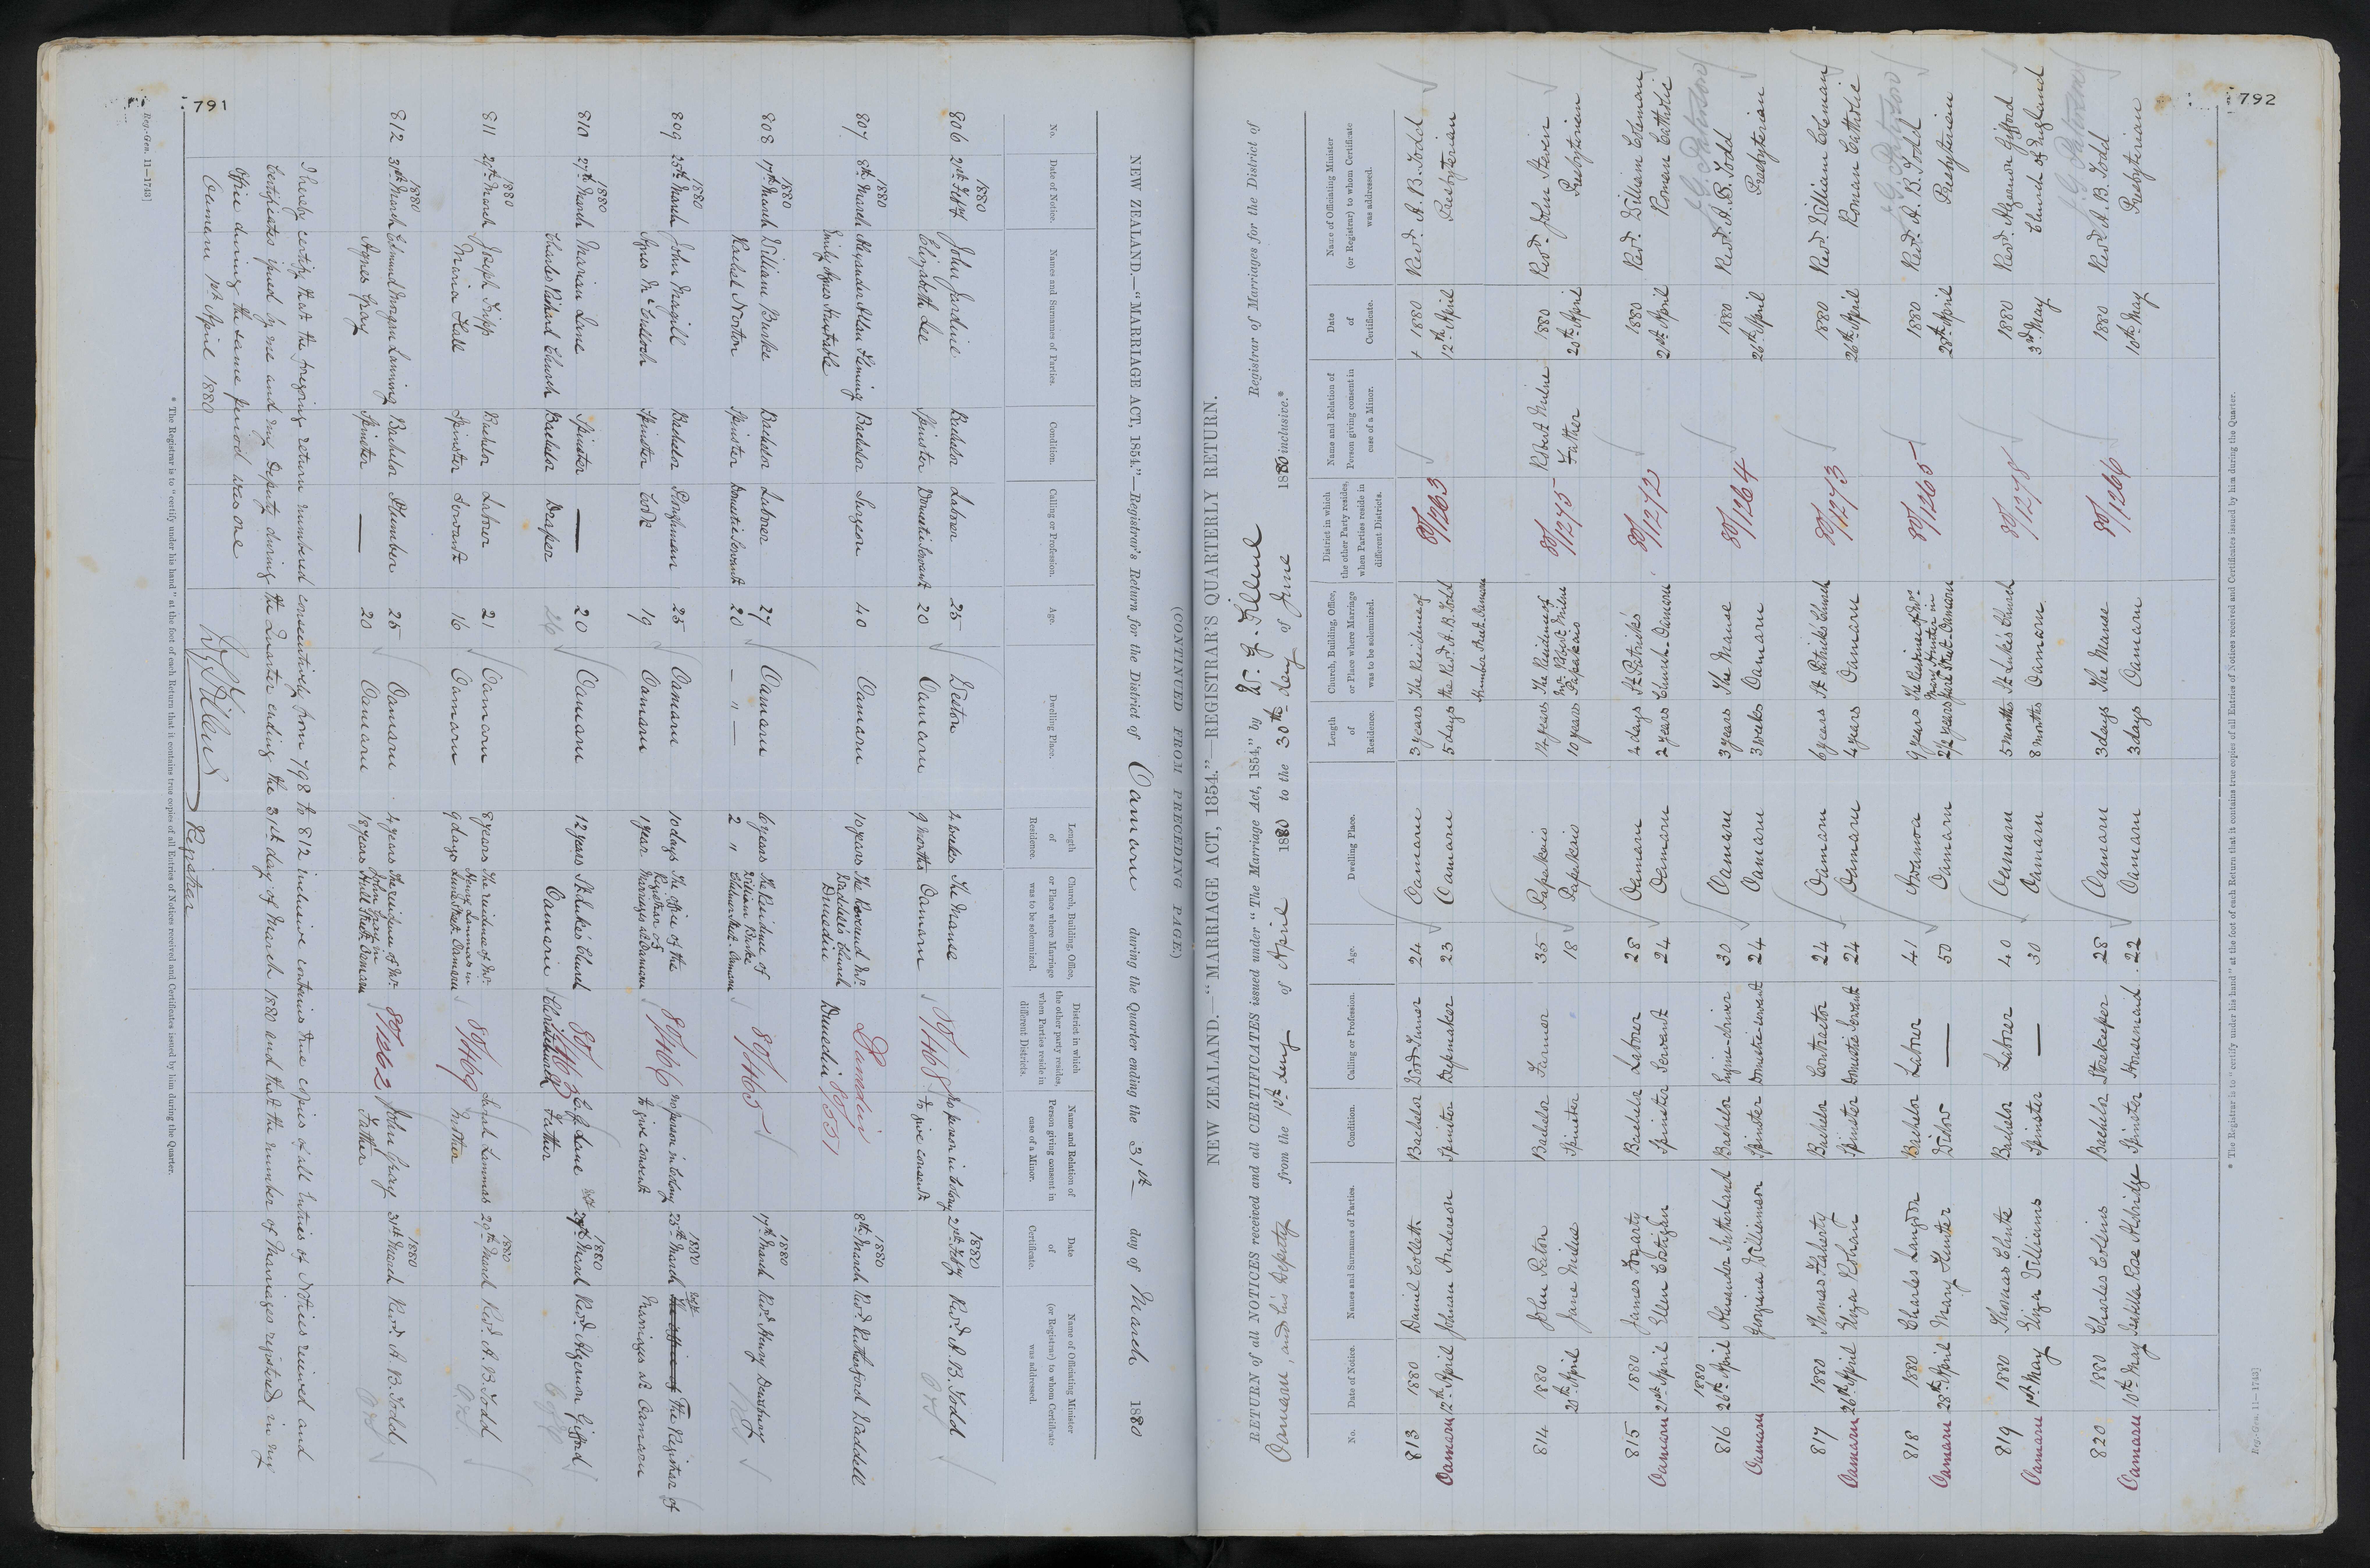 791
(CONTINUED FROM PRECEDING PAGE.)
NEW ZEALAND.—"MARRIAGE ACT, 1854."—Registrar's Return for the District of Oamaru during the Quarter ending the 31st day of March 1880
No. Date of Notice. Names and Surnames of Parties. Condition. Calling or Profession. Age. Dwelling Place. Length of Residence. Church, Building, Office, or Place where Marriage was to be solemnized. District in which the other party resides, when Parties reside in different Districts. Name and Relation of Person giving consent in case of a Minor. Date of Certificate. Name of Officiating Minister (or Registrar) to whom Certificate was addressed.
1880 1880
806 21st Feby John Jardine Bachelor Laborer 25 Oamaru 4 weeks The Manse 80/1468 No person in Colony 21st Feby Revd. A. B. Todd
Elizabeth Lee Spinster Domestic Servant 20 Oamaru 9 months Oamaru to give consent
1880 1880
807 8th March Alexander Allan Fleming Bachelor Surgeon 40 Oamaru 10 years The Reverend Mr. Dunedin 8th March Revd. Rutherford Waddell
Emily Agnes Waddell's Church Dunedin Dunedin 80/551
1880 1880
808 17th March William Burke Bachelor Laborer 27 Oamaru 6 years The Residence of 80/1465 17th March Revd. Henry
Rachel Norton Spinster Domestic Servant 20 — " — 2 " William Burke Oamaru
1880 1880
809 25th March John Magill Bachelor Ploughman 25 Oamaru 10 days The Office of the 80/1466 No person in Colony 25th March The office of The Registrar of
Agnes McCulloch Spinster Cook 19 Oamaru 1 year Registrar of Marriages at Oamaru to give consent Marriages at Oamaru
1880 1880
810 27th March Marian Lane Spinster — 20 Oamaru 12 years St Luke's Church 80/1467 Lane 27th March Revd. Algernon Gifford
Charles Richard Church Bachelor Draper 26 Oamaru Christchurch Father
1880 1880
811 29th March Joseph Tripp Bachelor Laborer 21 Oamaru 8 years The residence of Mr. 80/1469 Sarah Lammas 29th March Revd. A. B. Todd
Maria Hall Spinster Servant 16 Oamaru 9 days Henry Lammas in Oamaru Mother
1880 1880
812 31st March Edmund Morgan Lanning Bachelor Plumber 25 Oamaru 4 years The residence of Mr. 80/1262 John Gray 31st March Revd. A. B. Todd
Agnes Gray Spinster — 20 Oamaru 18 years John Gray in Hull Street Oamaru Father
I hereby certify that the foregoing return numbered consecutively from 798 to 812 inclusive contains true copies of all Entries of Notices received and
Certificates issued by me and my Deputy during the Quarter ending the 31st day of March 1880 and that the number of Marriages registered in my
Office during the same period was one
Oamaru 1st April 1880 Registrar
* The Registrar is to "certify under his hand" at the foot of each Return that it contains true copies of all Entries of Notices received and Certificates issued by him during the Quarter.
Reg.-Gen. 11—1743]
792
NEW ZEALAND.—"MARRIAGE ACT, 1854."—REGISTRAR'S QUARTERLY RETURN.
RETURN of all NOTICES received and all CERTIFICATES issued under "The Marriage Act, 1854," by W. G. Filleul Registrar of Marriages for the District of
Oamaru, and his Deputy from the 1st day of April 1880 to the 30th day of June 1880 inclusive.*
No. Date of Notice. Names and Surnames of Parties. Condition. Calling or Profession. Age. Dwelling Place. Length of Residence. Church, Building, Office, or Place where Marriage was to be solemnized. District in which the other Party resides, when Parties reside in different Districts. Name and Relation of Person giving consent in case of a Minor. Date of Certificate. Name of Officiating Minister (or Registrar) to whom Certificate was addressed.
813 1880 Daniel Bachelor Wood Turner 24 Oamaru 3 years The Residence of 80/1263 1880 Revd. A. B. Todd
Oamaru 12th April Johnan Anderson Spinster Capmaker 23 Oamaru 5 days the Revd. A. B. Todd 12th April Presbyterian
Humber Street Oamaru
814 1880 John Paton Bachelor Farmer 35 Papakaio 14 years The Residence of 80/1275 Robert Milne 1880 Revd. John Steven
20th April Jane Milne Spinster 18 Papakaio 10 years Mr. Robert Milne Papakaio Father 20th April Presbyterian
815 1880 James Fogarty Bachelor Laborer 28 Oamaru 4 days St Patrick's 80/1272 1880 Revd. William Coleman
Oamaru 21st April Ellen Costigan Spinster Servant 24 Oamaru 2 years Church Oamaru 21st April Roman Catholic
816 1880 26th April Alexander Sutherland Bachelor Engine-driver 30 Oamaru 3 years The Manse 80/1264 1880 Revd. A. B. Todd
Oamaru Georgina Williamson Spinster Domestic Servant 24 Oamaru 3 weeks Oamaru 26th April Presbyterian
817 1880 Thomas Flaherty Bachelor Contractor 24 Oamaru 6 years St Patrick's Church 80/1273 1880 Revd. William Coleman
Oamaru 26th April Eliza Spinster Domestic Servant 24 Oamaru 4 years Oamaru 26th April Roman Catholic
818 1880 Charles Langdon Bachelor Laborer 41 Awamoa 9 years The Residence of Mrs. 80/1265 1880 Revd. A. B. Todd
Oamaru 28th April Mary Hunter Widow — 50 Oamaru 2½ years Mary Hunter in Street Oamaru 28th April Presbyterian
819 1880 Thomas Chute Bachelor Laborer 40 Oamaru 5 months St Luke's Church 80/1278 1880 Revd. Algernon Gifford
Oamaru 1st May Eliza Williams Spinster — 30 Oamaru 8 months Oamaru 3rd May Church of England
820 1880 Charles Collins Bachelor Storekeeper 28 Oamaru 3 days The Manse 80/1266 1880 Revd. A. B. Todd
Oamaru 10th May Isabella Rae Aldridge Spinster Housemaid 22 Oamaru 3 days Oamaru 10th May Presbyterian
* The Registrar is to "certify under his hand" at the foot of each Return that it contains true copies of all Entries of Notices received and Certificates issued by him during the Quarter.
Reg.-Gen. 11—1743]